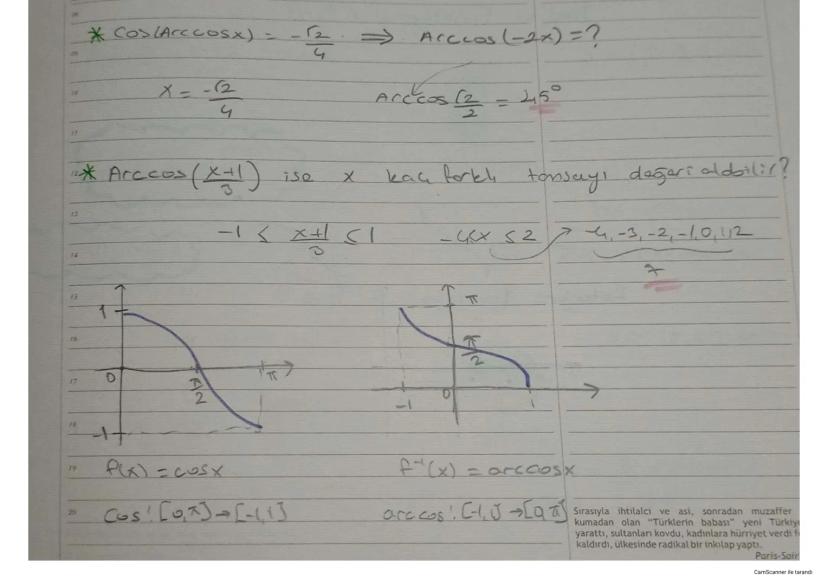 * Cos(Arccosx) = -√2/4 ⇒ Arccos(-2x) = ?
x = -√2/4 Arccos √2/2 = 45°
* Arccos((x+1)/3) ise x kaç farklı tamsayı değeri alabilir?
-1 ≤ (x+1)/3 ≤ 1 -4≤x ≤2 → -4, -3, -2, -1, 0, 1, 2
7
1 0 π/2 π -1
π π/2 -1 0 1
f(x) = cosx f⁻¹(x) = arccosx
cos: [0,π]→[-1,1] arccos: [-1,1]→[0,π]
Sırasıyla ihtilalci ve asi, sonradan muzaffer
kumadan olan "Türklerin babası" yeni Türkiye
yarattı, sultanları kovdu, kadınlara hürriyet verdi
kaldırdı, ülkesinde radikal bir inkılap yaptı.
CamScanner ile tarandı